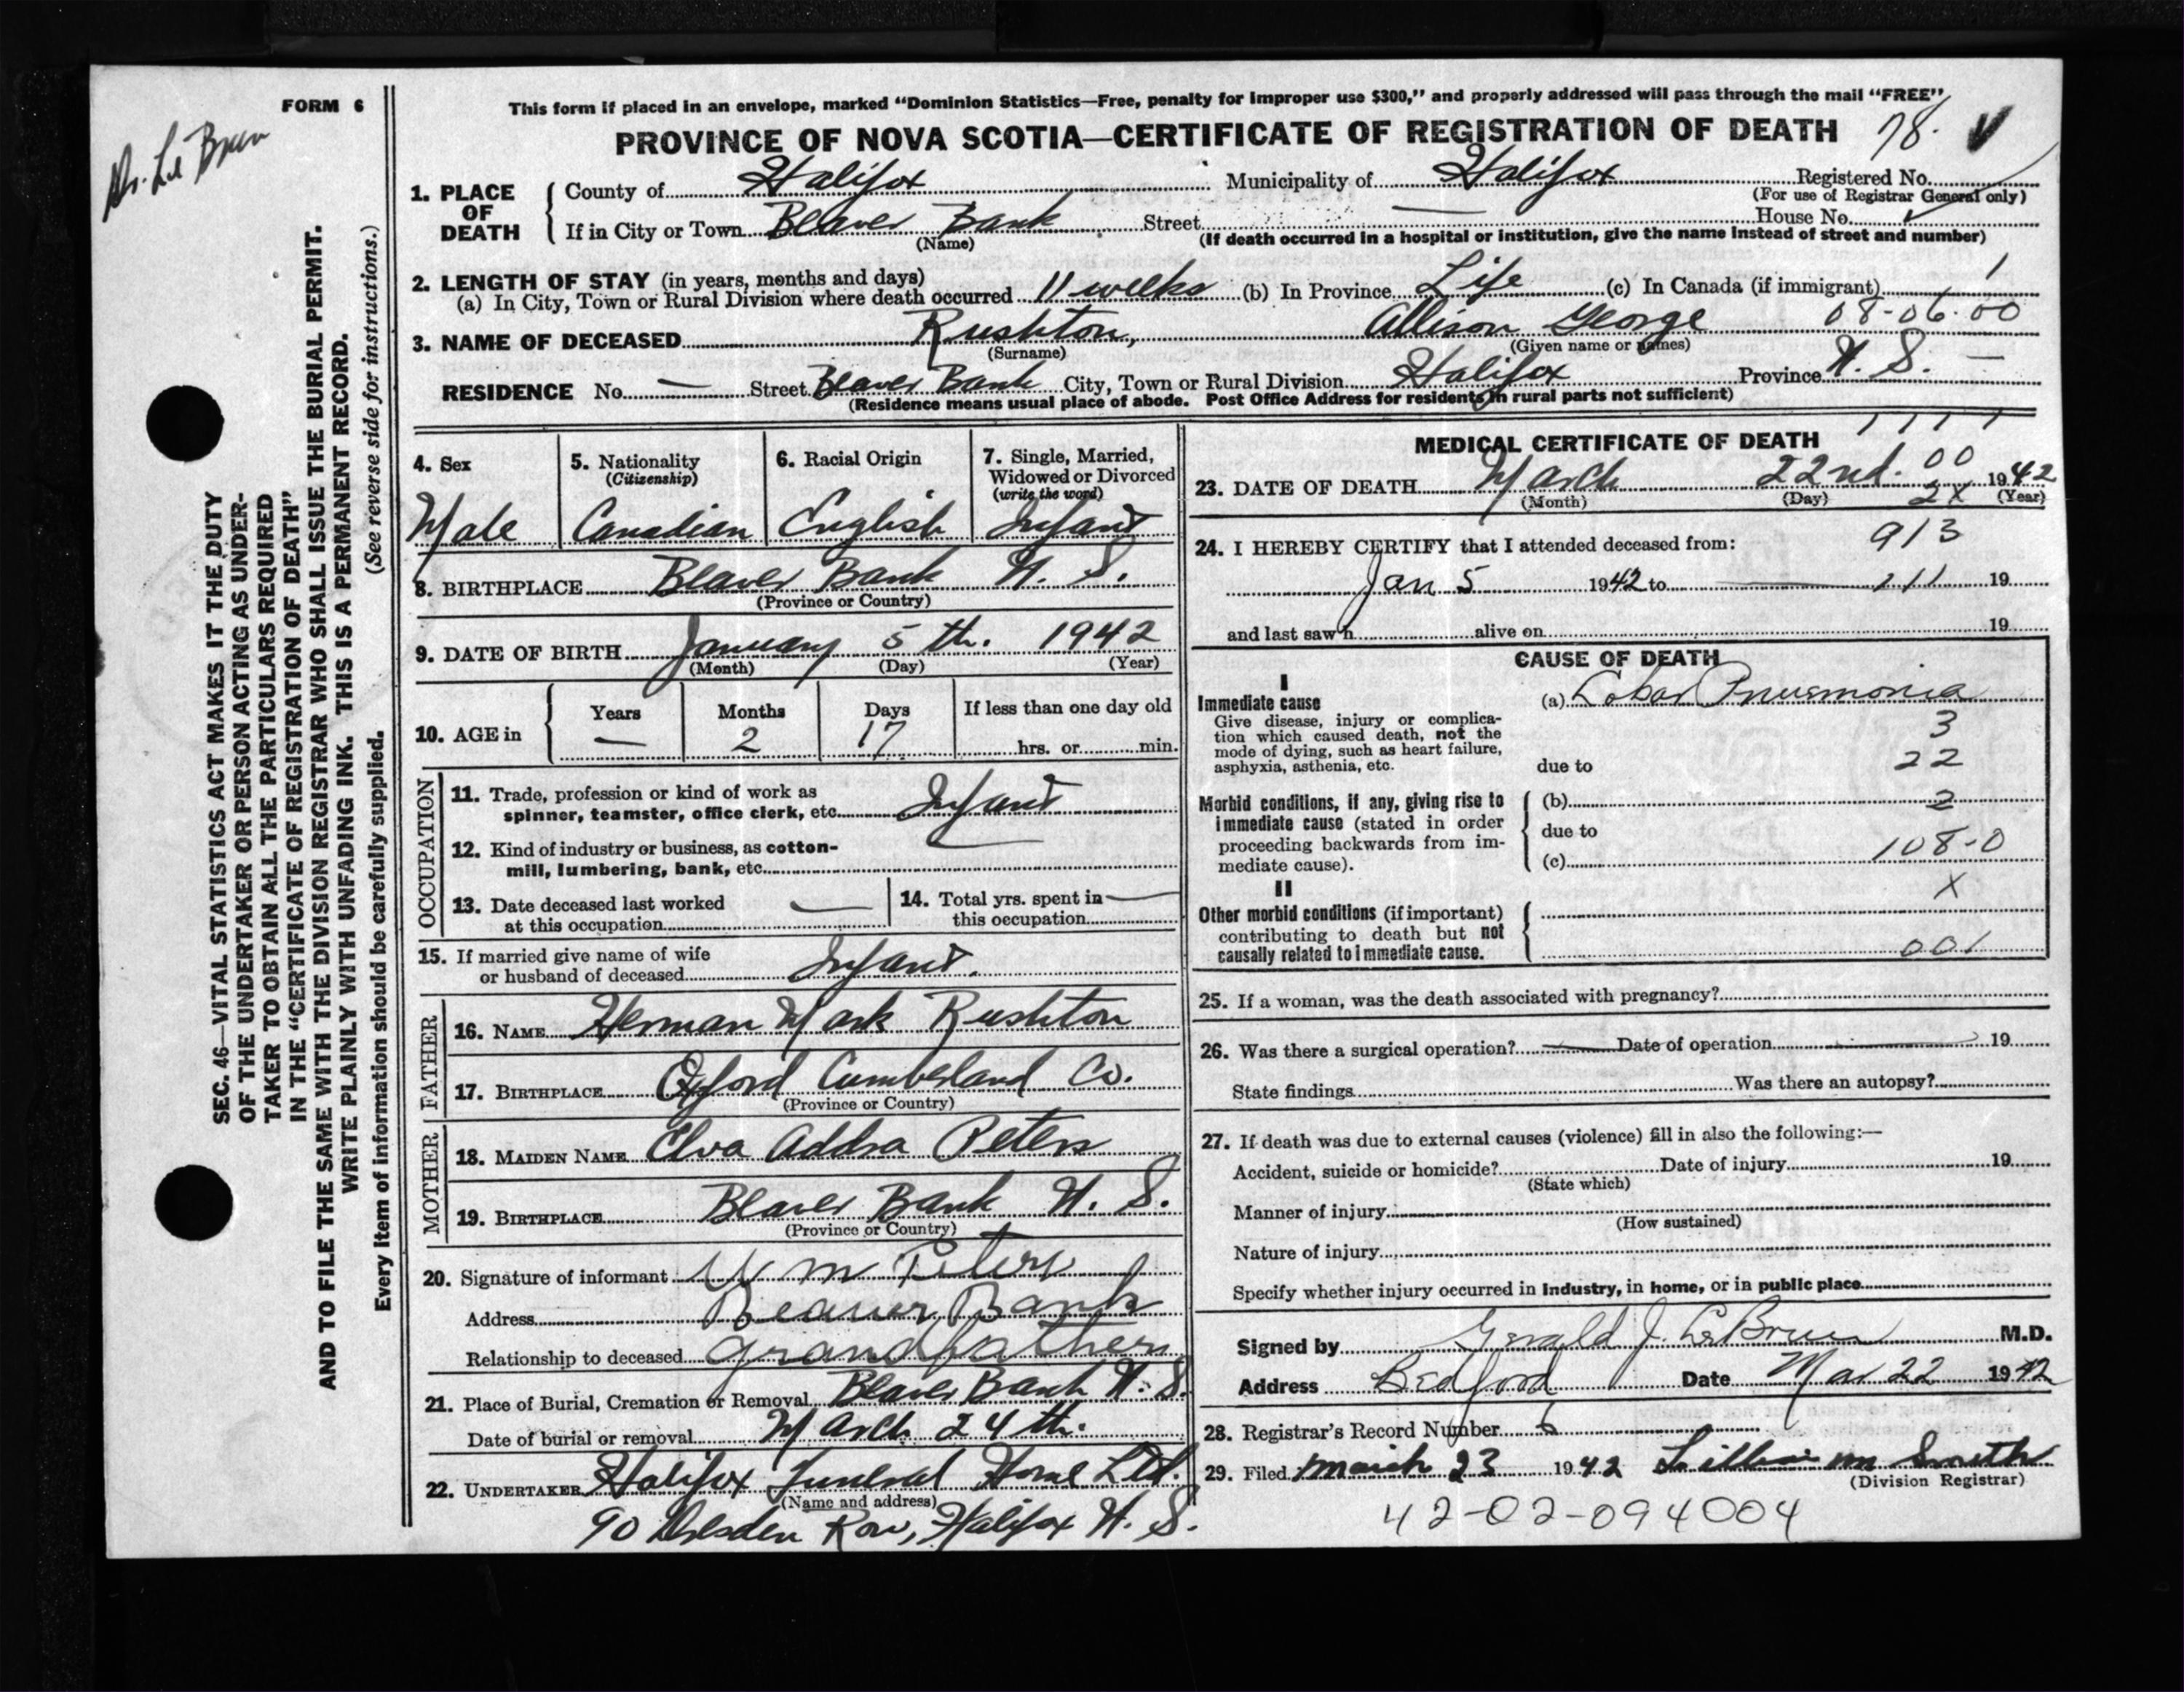 FORM 6
Dr. Le Brun
This form if placed in an envelope, marked "Dominion Statistics—Free, penalty for improper use $300," and properly addressed will pass through the mail "FREE"
PROVINCE OF NOVA SCOTIA—CERTIFICATE OF REGISTRATION OF DEATH 78.
SEC. 46—VITAL STATISTICS ACT MAKES IT THE DUTY
OF THE UNDERTAKER OR PERSON ACTING AS UNDER-
TAKER TO OBTAIN ALL THE PARTICULARS REQUIRED
IN THE "CERTIFICATE OF REGISTRATION OF DEATH"
AND TO FILE THE SAME WITH THE DIVISION REGISTRAR WHO SHALL ISSUE THE BURIAL PERMIT.
WRITE PLAINLY WITH UNFADING INK. THIS IS A PERMANENT RECORD.
Every item of information should be carefully supplied. (See reverse side for instructions.)
1. PLACE OF DEATH
County of Halifax Municipality of Halifax Registered No.
(For use of Registrar General only)
If in City or Town Beaver Bank Street — House No.
(Name) (If death occurred in a hospital or institution, give the name instead of street and number)
2. LENGTH OF STAY (in years, months and days)
(a) In City, Town or Rural Division where death occurred 11 weeks (b) In Province Life (c) In Canada (if immigrant) 1
3. NAME OF DECEASED Rushton, Allison George 08-06-00
(Surname) (Given name or names)
RESIDENCE No. — Street Beaver Bank City, Town or Rural Division Halifax Province N. S. —
(Residence means usual place of abode. Post Office Address for residents in rural parts not sufficient)
4. Sex 5. Nationality 6. Racial Origin 7. Single, Married,
(Citizenship) Widowed or Divorced
(write the word)
Male Canadian English Infant
8. BIRTHPLACE Beaver Bank N. S.
(Province or Country)
9. DATE OF BIRTH January 5th. 1942
(Month) (Day) (Year)
10. AGE in Years Months Days If less than one day old
— 2 17 hrs. or min.
OCCUPATION
11. Trade, profession or kind of work as
spinner, teamster, office clerk, etc. Infant
12. Kind of industry or business, as cotton-
mill, lumbering, bank, etc. —
13. Date deceased last worked
at this occupation —
14. Total yrs. spent in
this occupation —
15. If married give name of wife
or husband of deceased Infant.
FATHER
16. NAME Herman Mark Rushton
17. BIRTHPLACE Oxford Cumberland Co.
(Province or Country)
MOTHER
18. MAIDEN NAME Elva Addra Peters
19. BIRTHPLACE Beaver Bank N. S.
(Province or Country)
20. Signature of informant Wm Peters
Address Beaver Bank
Relationship to deceased Grandfather
21. Place of Burial, Cremation or Removal Beaver Bank N. S.
Date of burial or removal March 24th.
22. UNDERTAKER Halifax Funeral Home Ltd.
(Name and address)
90 Dresden Row, Halifax N. S.
MEDICAL CERTIFICATE OF DEATH 1 1 1 1
23. DATE OF DEATH March 22nd. 00 1942
(Month) (Day) 2X (Year)
24. I HEREBY CERTIFY that I attended deceased from: 913
Jan 5 1942 to — 111 19
and last saw h alive on 19
CAUSE OF DEATH
I
Immediate cause (a) Lobar Pneumonia
Give disease, injury or complica-
tion which caused death, not the 3
mode of dying, such as heart failure,
asphyxia, asthenia, etc. due to 22
Morbid conditions, if any, giving rise to (b) 2
immediate cause (stated in order due to
proceeding backwards from im-
mediate cause). (c) 108-0
II X
Other morbid conditions (if important)
contributing to death but not
causally related to immediate cause. 001
25. If a woman, was the death associated with pregnancy?
26. Was there a surgical operation? — Date of operation — 19
State findings Was there an autopsy?
27. If death was due to external causes (violence) fill in also the following:—
Accident, suicide or homicide? Date of injury 19
(State which)
Manner of injury
(How sustained)
Nature of injury
Specify whether injury occurred in industry, in home, or in public place
Signed by Gerald J. LeBrun M.D.
Address Bedford Date Mar 22 1942
28. Registrar's Record Number 6
29. Filed March 23 1942 Lillian M Smith
(Division Registrar)
42-02-094004